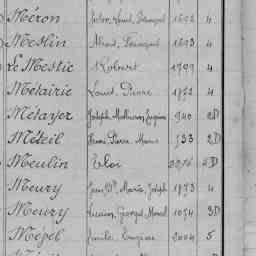 Méron Victor, Louis, François 1692 4
Meslin Albert, François 1693 4
Le Mestic Robert 1799 4
Métairie Louis, Pierre 1852 4
Métayer Joseph, Mathurin, Eugène 940 2D
Méteil Henri, Pierre, Marius 933 2D
Meulin Eloi 2276 2D
Meury Jean, Bte, Marie, Joseph 1873 4
Meury Lucien, Georges, Marcel 1054 3D
Mépel Emile, Eugène 2004 5